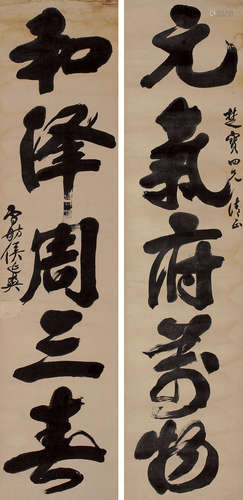 元氣府萬物
楚寶四兄清正
和澤周三春
雪舫侯延爽